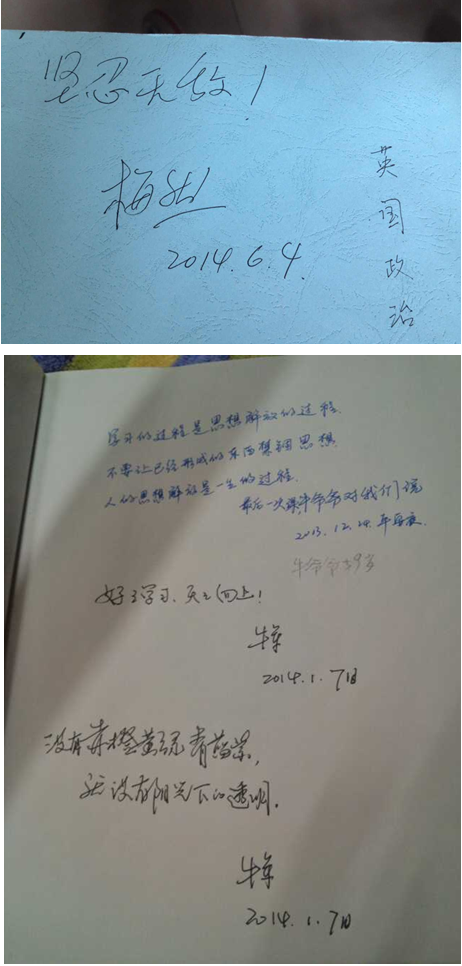 坚忍无敌!
梅然
2014.6.4.
英国政治
学习的过程是思想解放的过程.
不要让已经形成的东西禁锢思想.
人的思想解放是一生的过程.
最后一次课牛爷爷对我们说
2013.12.24.平安夜.
牛爷爷
好好学习、天天向上!
牛军
2014.1.7日
没有赤橙黄绿青蓝紫,
就没有阳光下的透明.
牛军
2014.1.7日